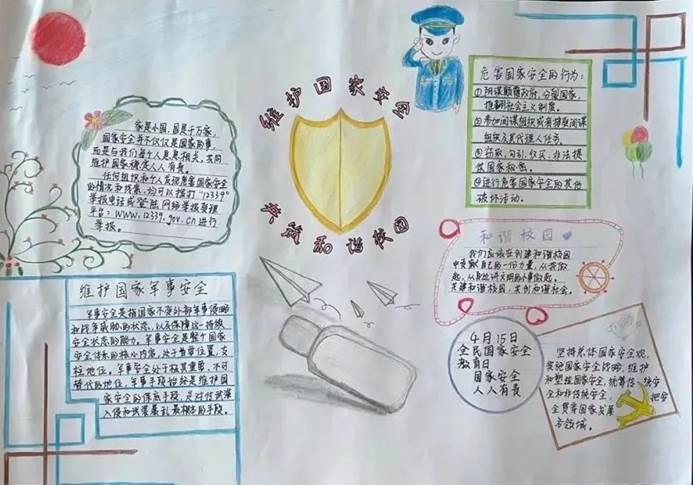 维护国家安全
共筑和谐校园
家是小国,国是千万家,
国家安全并不仅仅是国家的事,
而是与我们每个人息息相关,共同
维护国家稳定人人有责。
任何组织和个人发现危害国家安全
的情况和线索,均可以拨打"12339"
举报电话或登陆网络举报受理
平台:www.12339.gov.cn进行
举报。
危害国家安全的行为:
①阴谋颠覆政府,分裂国家,
推翻社会主义制度。
②参加间谍组织或者接受间谍
组织及其代理人任务。
③窃取、刺探、收买、非法提
供国家秘密。
④进行危害国家安全的其他
破坏活动。
和谐校园
我们应该在创建和谐校园
中贡献自己的一份力量,从我做
起,从身边
共建和谐校园,共创和谐社会。
维护国家军事安全
军事安全是指国家不受外部军事侵略
和战争威胁的状态,以及保障这一持续
安全状态的能力。军事安全是整个国家
安全体系的核心内容,处于重要位置,支
柱地位。军事安全处于极其重要、不可
替代的地位,军事手段始终是维护国
家安全的保底手段,是对付武装
入侵和武装暴乱最根本的手段。
4月15日
全民国家安全
教育日
国家安全
人人有责
坚持总体国家安全观,
实施国家安全战略,维护
和塑造国家安全,统筹传统安
全和非传统安全,把安
全贯穿国家发展
各领域。